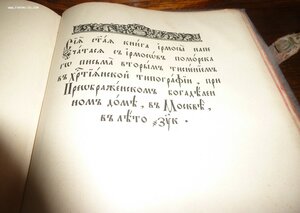 Сїѧ ст҃аѧ книга і҆рмосы̀ напе
чатасѧ съ і҆рмосовъ поморска
гѡ письма̀ вторымъ тисненїемъ
въ хрⷭ҇тїанской типографїи, при
Преѡбраженскомъ богадѣлен
номъ домѣ, въ Москвѣ,
въ лѣто ҂зу҃к.